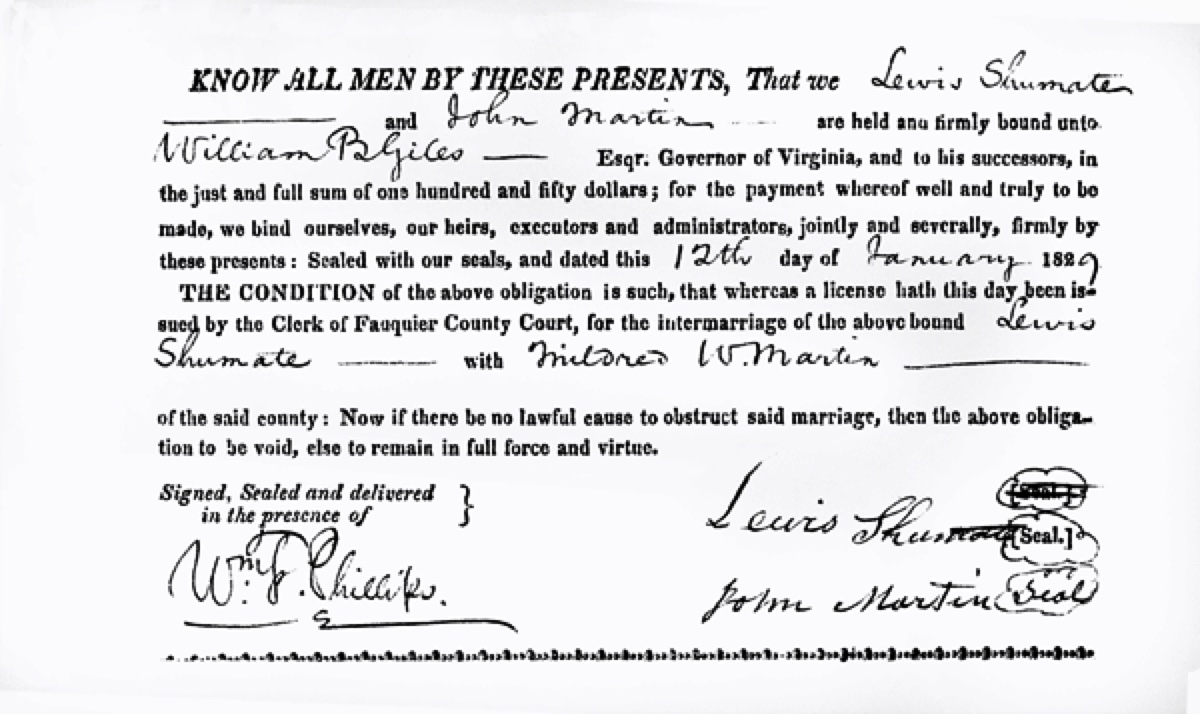 KNOW ALL MEN BY THESE PRESENTS, That we Lewis Shumate
and John Martin are held and firmly bound unto
William B Giles Esqr. Governor of Virginia, and to his successors, in
the just and full sum of one hundred and fifty dollars; for the payment whereof well and truly to be
made, we bind ourselves, our heirs, executors and administrators, jointly and severally, firmly by
these presents: Sealed with our seals, and dated this 12th day of January 1829
THE CONDITION of the above obligation is such, that whereas a license hath this day been is-
sued by the Clerk of Fauquier County Court, for the intermarriage of the above bound Lewis
Shumate with Mildred W. Martin
of the said county: Now if there be no lawful cause to obstruct said marriage, then the above obliga-
tion to be void, else to remain in full force and virtue.
Signed, Sealed and delivered
in the presence of
Wm. F. Phillips.
[Seal.]
Lewis Shumate [Seal.]
John Martin Seal